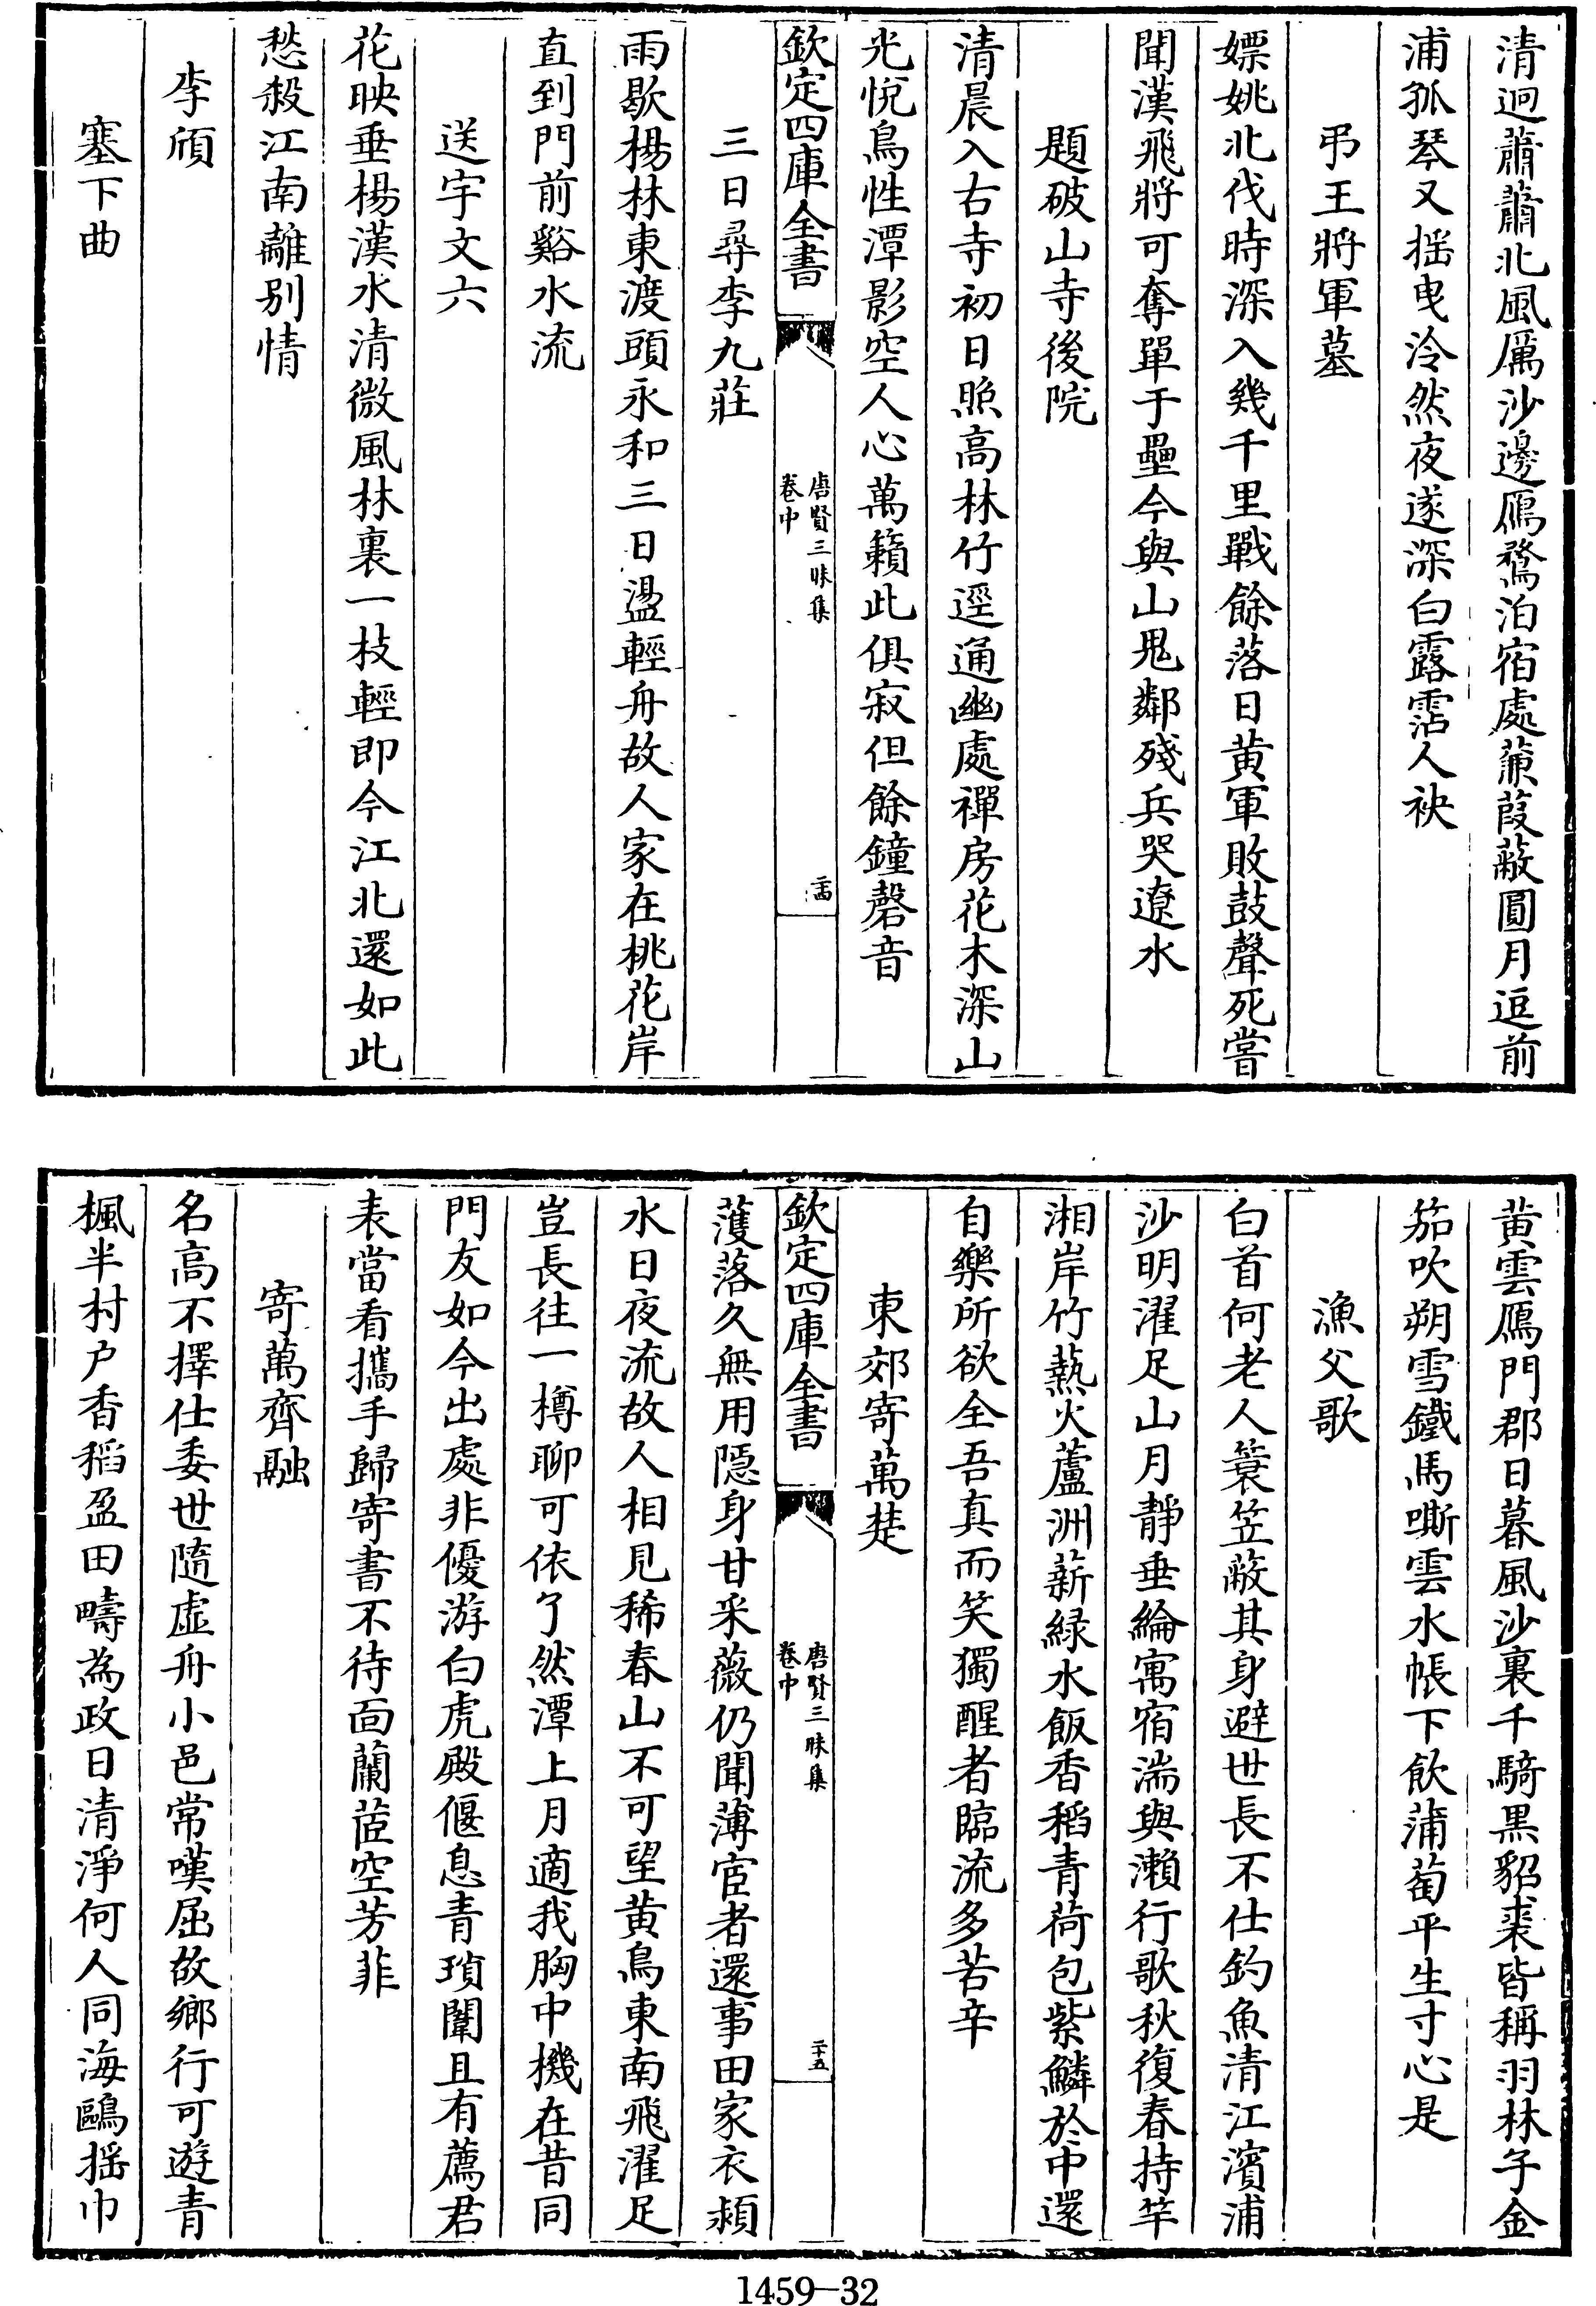 清迥蕭蕭北風厲沙邊鴈鶩泊宿處蒹葭蔽圓月逗前
浦孤琴又搖曳泠然夜遂深白露霑人袂
弔王將軍墓
嫖姚北伐時深入幾千里戰餘落日黃軍敗鼓聲死嘗
聞漢飛將可奪單于壘今與山鬼鄰殘兵哭遼水
題破山寺後院
清晨入古寺初日照高林竹逕通幽處禪房花木深山
光悅鳥性潭影空人心萬籟此俱寂但餘鐘磬音
欽定四庫全書
唐賢三昧集
卷中
二十四
三日尋李九莊
雨歇楊林東渡頭永和三日盪輕舟故人家在桃花岸
直到門前谿水流
送宇文六
花映垂楊漢水清微風林裏一枝輕即今江北還如此
愁殺江南離別情
李頎
塞下曲
黃雲鴈門郡日暮風沙裏千騎黑貂裘皆稱羽林子金
笳吹朔雪鐵馬嘶雲水帳下飲蒲萄平生寸心是
漁父歌
白首何老人簑笠蔽其身避世長不仕釣魚清江濱浦
沙明濯足山月靜垂綸寓宿湍與瀨行歌秋復春持竿
湘岸竹爇火蘆洲薪綠水飯香稻青荷包紫鱗於中還
自樂所欲全吾真而笑獨醒者臨流多苦辛
東郊寄萬楚
欽定四庫全書
唐賢三昧集
卷中
二十五
濩落久無用隱身甘采薇仍聞薄宦者還事田家衣潁
水日夜流故人相見稀春山不可望黃鳥東南飛濯足
豈長往一樽聊可依了然潭上月適我胸中機在昔同
門友如今出處非優游白虎殿偃息青瑣闈且有薦君
表當看攜手歸寄書不待面蘭茝空芳菲
寄萬齊融
名高不擇仕委世隨虛舟小邑常嘆屈故鄉行可遊青
楓半村戶香稻盈田疇為政日清淨何人同海鷗搖巾
1459—32